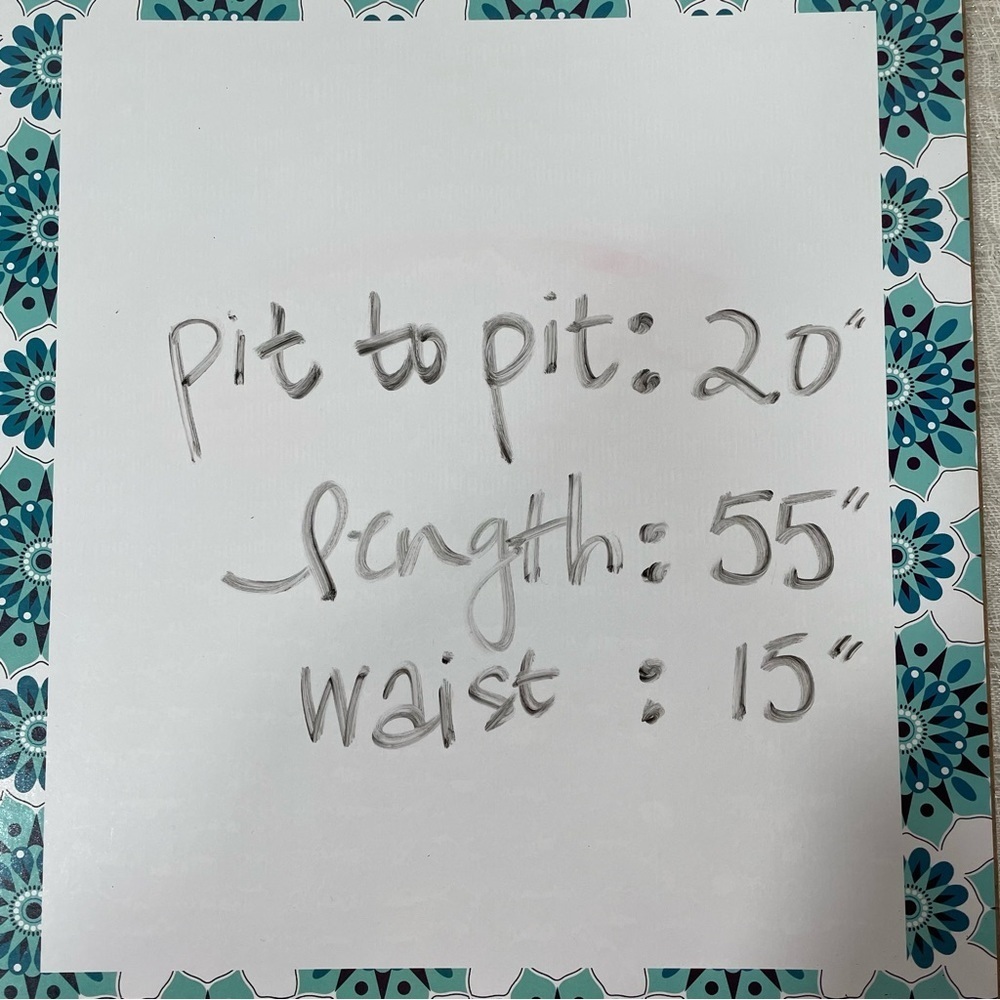 pit to pit: 20"
length: 55"
waist : 15"